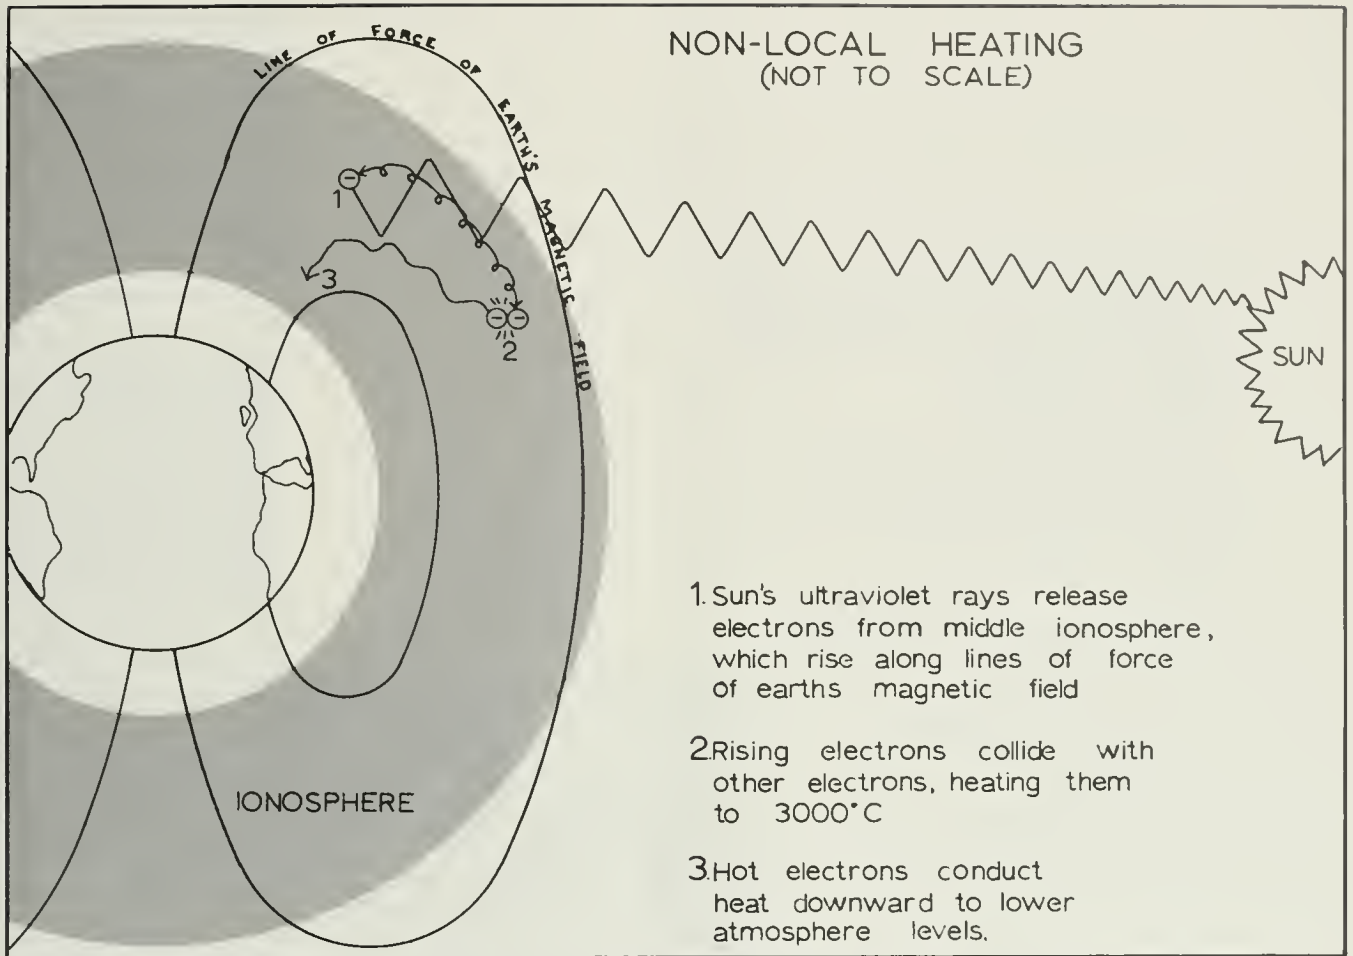 NON-LOCAL HEATING
(NOT TO SCALE)
LINE OF FORCE OF EARTH'S MAGNETIC FIELD
1
3
2
SUN
IONOSPHERE
1. Sun's ultraviolet rays release
electrons from middle ionosphere,
which rise along lines of force
of earths magnetic field
2.Rising electrons collide with
other electrons, heating them
to 3000°C
3.Hot electrons conduct
heat downward to lower
atmosphere levels.